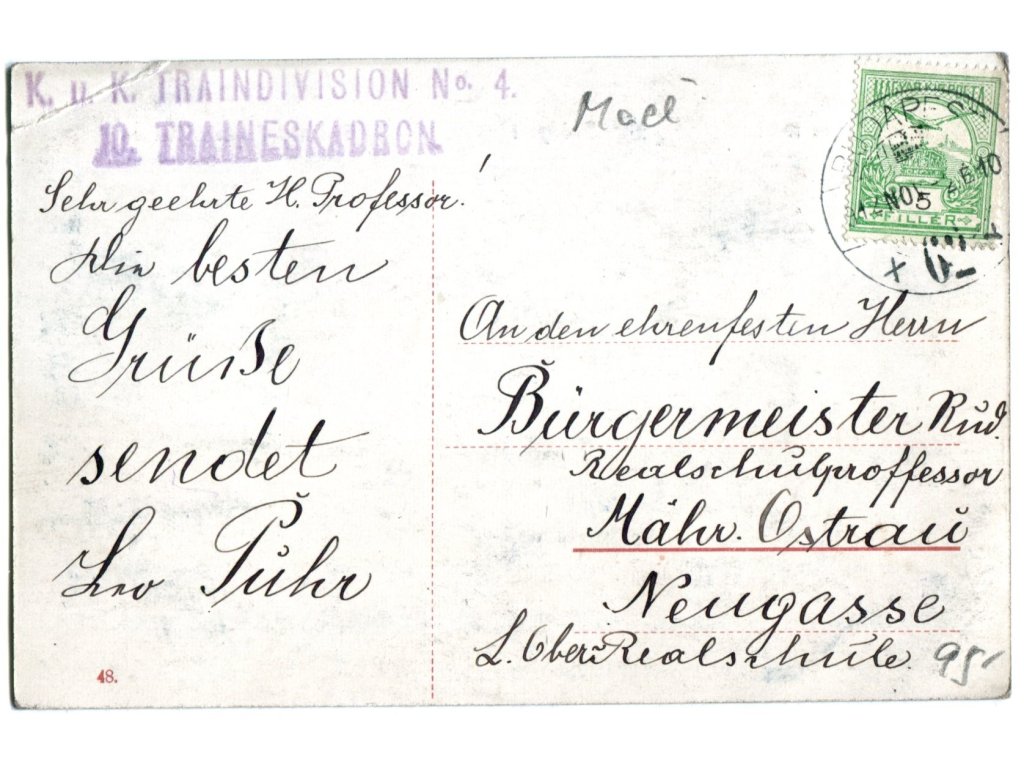 K. u. K. TRAINDIVISION No. 4.
10. TRAINESKADRON
Sehr geehrte H. Professor!
Die besten
Grüße
sendet
Leo Puhr
48.
MAGYAR KIR. POSTA
5
FILLÉR
BUDAPEST
NOV
An den ehrenfesten Herrn
Bürgermeister Rud.
Realschulproffessor
Mähr. Ostrau
Neugasse
L. Ober-Realschule.
95